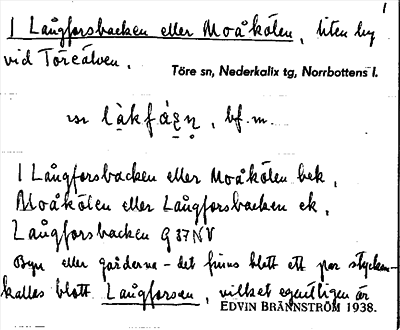 1
1 Långforsbacken eller Moåkölen, liten by
vid Töreälven.
Töre sn, Nederkalix tg, Norrbottens l.
bf. m.
1 Långforsbacken eller Moåkölen bek.
Moåkölen eller Långforsbacken ek.
Långforsbacken G 37 NV
Byn eller gårderna - det finns blott ett par stycken -
kallas blott Långforsen, vilket egentligen är
EDVIN BRÄNNSTRÖM 1938.